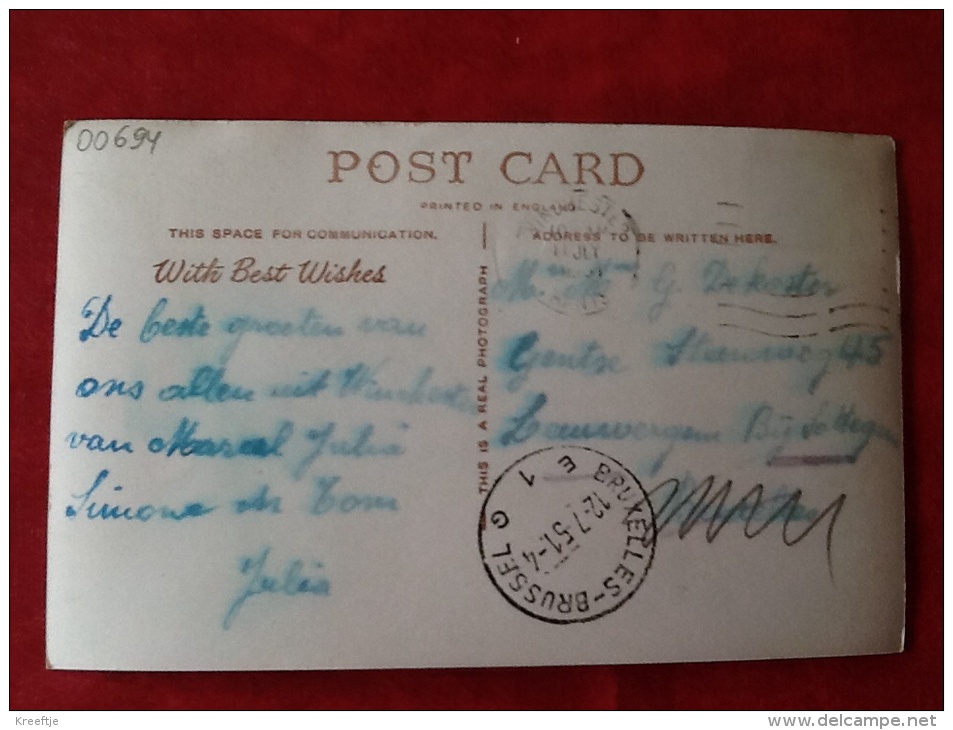 00694
POST CARD
PRINTED IN ENGLAND
THIS SPACE FOR COMMUNICATION.
ADDRESS TO BE WRITTEN HERE.
With Best Wishes
De beste groeten van
ons allen uit Winchester
van Marcel Julia
Simone en Tom
Julia
THIS IS A REAL PHOTOGRAPH
G. Dekoster
Gentse Steenweg 45
Leeuwergem Bij Sottegem
WINCHESTER
JLY
BRUXELLES-BRUSSEL
G E 1
12-7-51-4
Kreeftje
www.delcampe.net